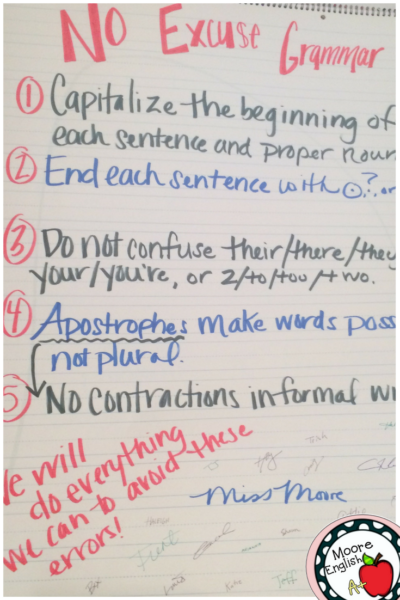 No Excuse Grammar
① Capitalize the beginning of
each sentence and proper noun
② End each sentence with ⊙? or
③ Do not confuse their/there/they
your/you're, or 2/to/too/two.
④ Apostrophes make words poss
not plural.
⑤ No contractions in formal wr
We will
do everything
we can to avoid these
errors!
Miss Moore
Moore
English
A+